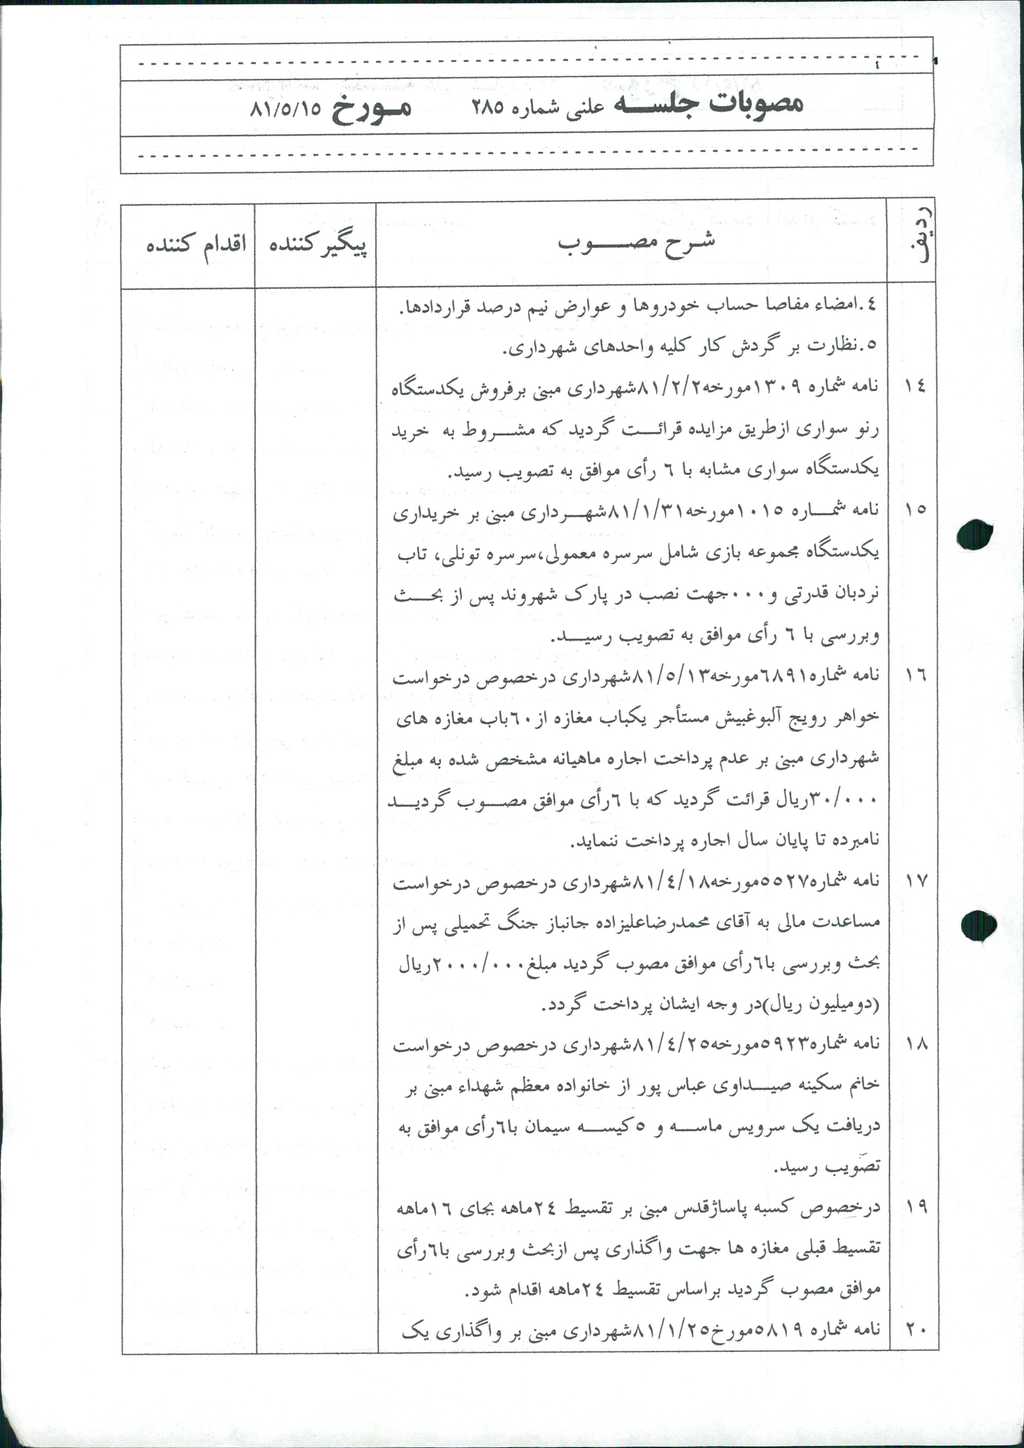 مصوبات جلسه علنی شماره ۲۸۵ مورخ ۸۱/۵/۱۵
ردیف شرح مصوب پیگیرکننده اقدام کننده
۴.امضاء مفاصا حساب خودروها و عوارض نیم درصد قراردادها.
۵.نظارت بر گردش کار کلیه واحدهای شهرداری.
۱۴ نامه شماره ۱۳۰۹مورخه۸۱/۲/۲شهرداری مبنی برفروش یکدستگاه
رنو سواری ازطریق مزایده قرائت گردید که مشروط به خرید
یکدستگاه سواری مشابه با ۶ رأی موافق به تصویب رسید.
۱۵ نامه شماره ۱۰۱۵مورخه۸۱/۱/۳۱شهرداری مبنی بر خریداری
یکدستگاه مجموعه بازی شامل سرسره معمولی،سرسره تونلی، تاب
نردبان قدرتی و۰۰۰جهت نصب در پارک شهروند پس از بحث
وبررسی با ۶ رأی موافق به تصویب رسید.
۱۶ نامه شماره۶۸۹۱مورخه۸۱/۵/۱۳شهرداری درخصوص درخواست
خواهر رویج آلبوغبیش مستأجر یکباب مغازه از۶۰باب مغازه های
شهرداری مبنی بر عدم پرداخت اجاره ماهیانه مشخص شده به مبلغ
۳۰/۰۰۰ریال قرائت گردید که با ۶رأی موافق مصوب گردید
نامبرده تا پایان سال اجاره پرداخت ننماید.
۱۷ نامه شماره۵۵۲۷مورخه۸۱/۴/۱۸شهرداری درخصوص درخواست
مساعدت مالی به آقای محمدرضاعلیزاده جانباز جنگ تحمیلی پس از
بحث وبررسی با۶رأی موافق مصوب گردید مبلغ۲۰۰۰/۰۰۰ریال
(دومیلیون ریال)در وجه ایشان پرداخت گردد.
۱۸ نامه شماره۵۹۲۳مورخه۸۱/۴/۲۵شهرداری درخصوص درخواست
خانم سکینه صیداوی عباس پور از خانواده معظم شهداء مبنی بر
دریافت یک سرویس ماسه و ۵کیسه سیمان با۶رأی موافق به
تصویب رسید.
۱۹ درخصوص کسبه پاساژقدس مبنی بر تقسیط ۲۴ماهه بجای ۱۶ماهه
تقسیط قبلی مغازه ها جهت واگذاری پس ازبحث وبررسی با۶رأی
موافق مصوب گردید براساس تقسیط ۲۴ماهه اقدام شود.
۲۰ نامه شماره ۵۸۱۹مورخ۸۱/۱/۲۵شهرداری مبنی بر واگذاری یک